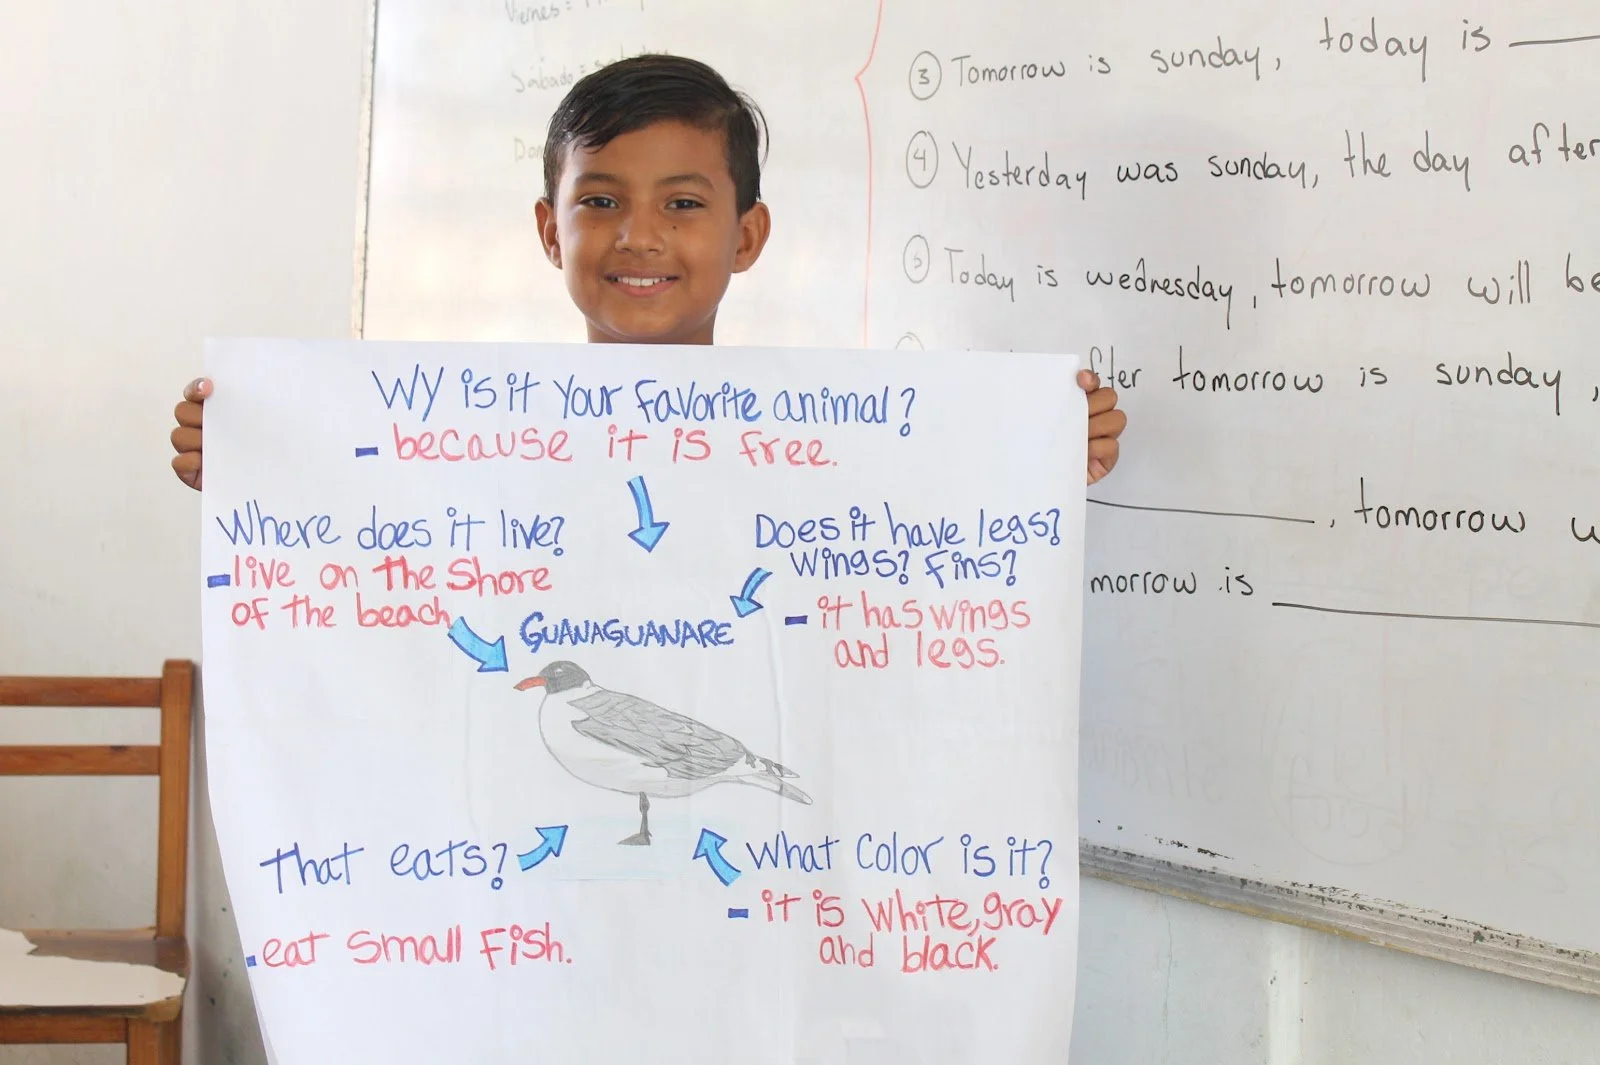 Viernes =
Sábado =
③ Tomorrow is sunday, today is
④ Yesterday was sunday, the day after
⑤ Today is wednesday, tomorrow will be
after tomorrow is sunday,
, tomorrow
morrow is
WY is it Your Favorite animal?
- because it is free.
Where does it live?
- live on The Shore
of The beach
Does it have legs?
Wings? Fins?
- it has wings
and legs.
GUANAGUANARE
That eats?
- eat Small Fish.
What Color is it?
- it is White, gray
and black.